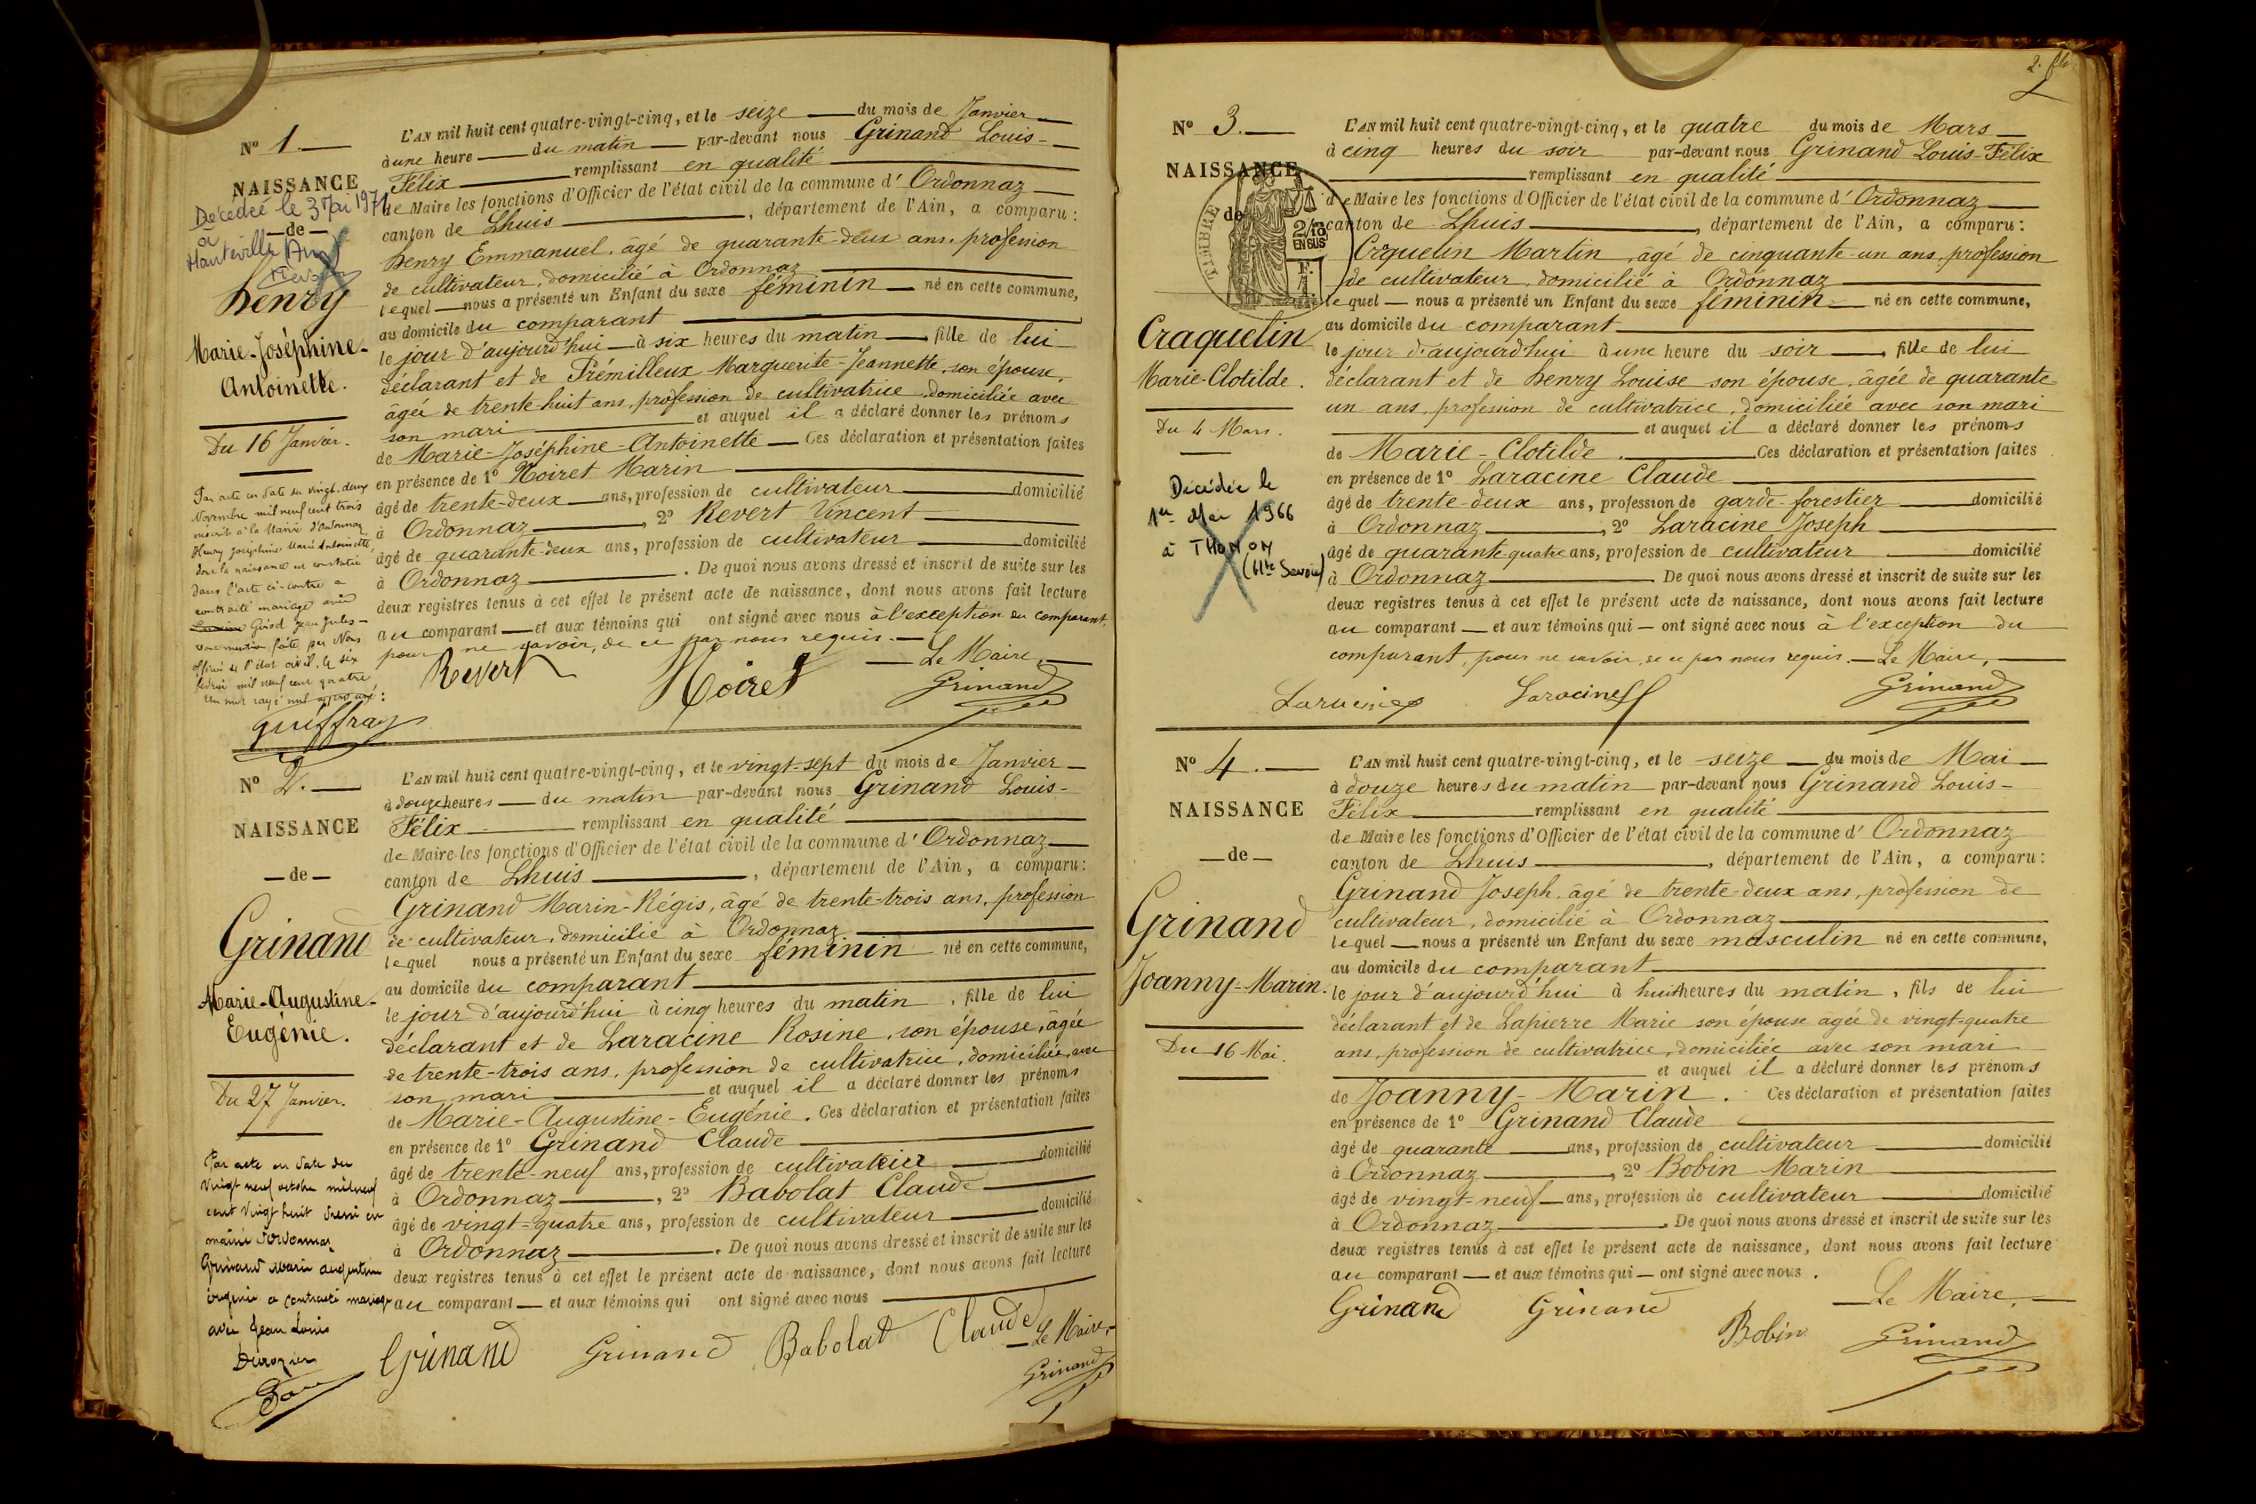 N° 1.
NAISSANCE
Décédée le 3 Mai 1971
à
—de—
Hauteville Ain
henry
Marie-Joséphine-
Antoinette.
Du 16 Janvier.
Par acte en date du vingt-deux
Novembre mil neuf cent trois
inscrit à la Mairie d'Ordonnaz
Henry Joséphine Marie Antoinette,
dont la naissance est constatée
dans l'acte ci-contre a
contracté mariage avec
Girod Jean Jules
mention faite par Nous
officier de l'état civil, le six
février mil neuf cent quatre
Un mot rayé nul
Guiffray
L'AN mil huit cent quatre-vingt-cinq, et le seize du mois de Janvier
à une heure du matin par-devant nous Grinand Louis-
Félix remplissant en qualité
de Maire les fonctions d'Officier de l'état civil de la commune d'Ordonnaz
canton de Lhuis, département de l'Ain, a comparu:
henry Emmanuel, âgé de quarante-deux ans, profession
de cultivateur, domicilié à Ordonnaz
lequel nous a présenté un Enfant du sexe féminin né en cette commune,
au domicile du comparant
le jour d'aujourd'hui à six heures du matin, fille de lui
déclarant et de Prémilleux Marguerite-Jeannette, son épouse,
âgée de trente huit ans, profession de cultivatrice, domiciliée avec
son mari et auquel il a déclaré donner les prénoms
de Marie-Joséphine-Antoinette Ces déclaration et présentation faites
en présence de 1° Moiret Marin
âgé de trente-deux ans, profession de cultivateur domicilié
à Ordonnaz, 2° Revert Vincent
âgé de quarante-deux ans, profession de cultivateur domicilié
à Ordonnaz. De quoi nous avons dressé et inscrit de suite sur les
deux registres tenus à cet effet le présent acte de naissance, dont nous avons fait lecture
au comparant et aux témoins qui ont signé avec nous à l'exception du comparant,
pour ne savoir, de ce par nous requis. — Le Maire,
Revert Moiret Grinand
N° 2.
NAISSANCE
—de—
Grinand
Marie-Augustine-
Eugénie.
Du 27 Janvier.
Par acte en date du
vingt neuf octobre mil neuf
cent vingt huit dressé en
mairie d'Ordonnaz
Grinand Marie Augustine
Eugénie a contracté mariage
avec Jean Louis
L'AN mil huit cent quatre-vingt-cinq, et le vingt-sept du mois de Janvier
à douze heures du matin par-devant nous Grinand Louis-
Félix remplissant en qualité
de Maire les fonctions d'Officier de l'état civil de la commune d'Ordonnaz
canton de Lhuis, département de l'Ain, a comparu:
Grinand Marin-Régis, âgé de trente-trois ans, profession
de cultivateur, domicilié à Ordonnaz
lequel nous a présenté un Enfant du sexe féminin né en cette commune,
au domicile du comparant
le jour d'aujourd'hui à cinq heures du matin, fille de lui
déclarant et de Laracine Rosine, son épouse, âgée
de trente-trois ans, profession de cultivatrice, domiciliée avec
son mari et auquel il a déclaré donner les prénoms
de Marie-Augustine-Eugénie. Ces déclaration et présentation faites
en présence de 1° Grinand Claude
âgé de trente-neuf ans, profession de cultivateur domicilié
à Ordonnaz, 2° Babolat Claude
âgé de vingt-quatre ans, profession de cultivateur domicilié
à Ordonnaz. De quoi nous avons dressé et inscrit de suite sur les
deux registres tenus à cet effet le présent acte de naissance, dont nous avons fait lecture
au comparant et aux témoins qui ont signé avec nous
Grinand Grinand Babolat Claude Le Maire,
Grinand
N° 3.
NAISSANCE
de
TIMBRE
2/10
EN SUS
Craquelin
Marie-Clotilde.
Du 4 Mars.
Décédée le
1er Mai 1966
à THONON
(Hte Savoie)
L'AN mil huit cent quatre-vingt-cinq, et le quatre du mois de Mars
à cinq heures du soir par-devant nous Grinand Louis-Félix
remplissant en qualité
de Maire les fonctions d'Officier de l'état civil de la commune d'Ordonnaz
canton de Lhuis, département de l'Ain, a comparu:
Craquelin Martin, âgé de cinquante-un ans, profession
de cultivateur, domicilié à Ordonnaz
lequel nous a présenté un Enfant du sexe féminin né en cette commune,
au domicile du comparant
le jour d'aujourd'hui à une heure du soir, fille de lui
déclarant et de henry Louise son épouse, âgée de quarante
un ans, profession de cultivatrice, domiciliée avec son mari
et auquel il a déclaré donner les prénoms
de Marie-Clotilde. Ces déclaration et présentation faites
en présence de 1° Laracine Claude
âgé de trente-deux ans, profession de garde-forestier domicilié
à Ordonnaz, 2° Laracine Joseph
âgé de quarante-quatre ans, profession de cultivateur domicilié
à Ordonnaz. De quoi nous avons dressé et inscrit de suite sur les
deux registres tenus à cet effet le présent acte de naissance, dont nous avons fait lecture
au comparant et aux témoins qui ont signé avec nous à l'exception du
comparant, pour ne savoir, de ce par nous requis. — Le Maire,
Laracine Laracine Grinand
N° 4.
NAISSANCE
—de—
Grinand
Joanny-Marin.
Du 16 Mai.
L'AN mil huit cent quatre-vingt-cinq, et le seize du mois de Mai
à douze heures du matin par-devant nous Grinand Louis-
Félix remplissant en qualité
de Maire les fonctions d'Officier de l'état civil de la commune d'Ordonnaz
canton de Lhuis, département de l'Ain, a comparu:
Grinand Joseph, âgé de trente-deux ans, profession de
cultivateur, domicilié à Ordonnaz
lequel nous a présenté un Enfant du sexe masculin né en cette commune,
au domicile du comparant
le jour d'aujourd'hui à huit heures du matin, fils de lui
déclarant et de Lapierre Marie son épouse âgée de vingt-quatre
ans, profession de cultivatrice, domiciliée avec son mari
et auquel il a déclaré donner les prénoms
de Joanny-Marin. Ces déclaration et présentation faites
en présence de 1° Grinand Claude
âgé de quarante ans, profession de cultivateur domicilié
à Ordonnaz, 2° Bobin Marin
âgé de vingt-neuf ans, profession de cultivateur domicilié
à Ordonnaz. De quoi nous avons dressé et inscrit de suite sur les
deux registres tenus à cet effet le présent acte de naissance, dont nous avons fait lecture
au comparant et aux témoins qui ont signé avec nous.
Le Maire,
Grinand Grinand Bobin Grinand